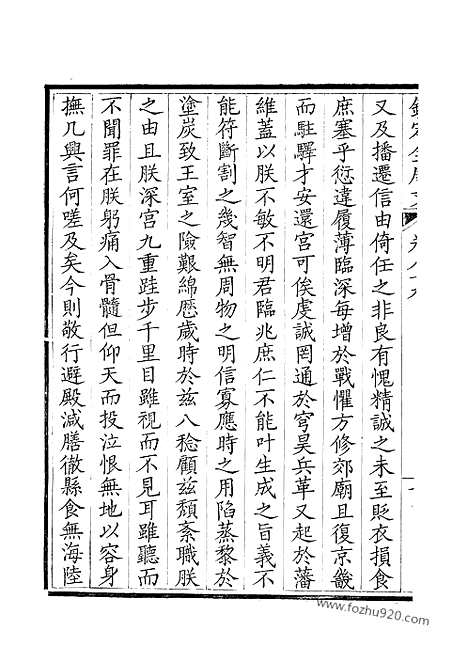 又及播遷信由倚任之非良有愧精誠之未至貶衣損食
庶塞乎愆違履薄臨深每增於戰懼方修郊廟且復京畿
而駐驛才安還宮可俟虔誠罔通於穹昊兵革又起於藩
維蓋以朕不敏不明君臨兆庶仁不能叶生成之旨義不
能符斷割之幾智無周物之明信寡應時之用陷蒸黎於
塗炭致王室之險艱綿歷歲時於茲八稔顧茲頹紊職朕
之由且朕深宮九重跬步千里目雖視而不見耳雖聽而
不聞罪在朕躬痛入骨髓但仰天而投泣恨無地以容身
撫几興言何嗟及矣今則敬行避殿減膳徹縣食無海陸
www.fozhu920.com